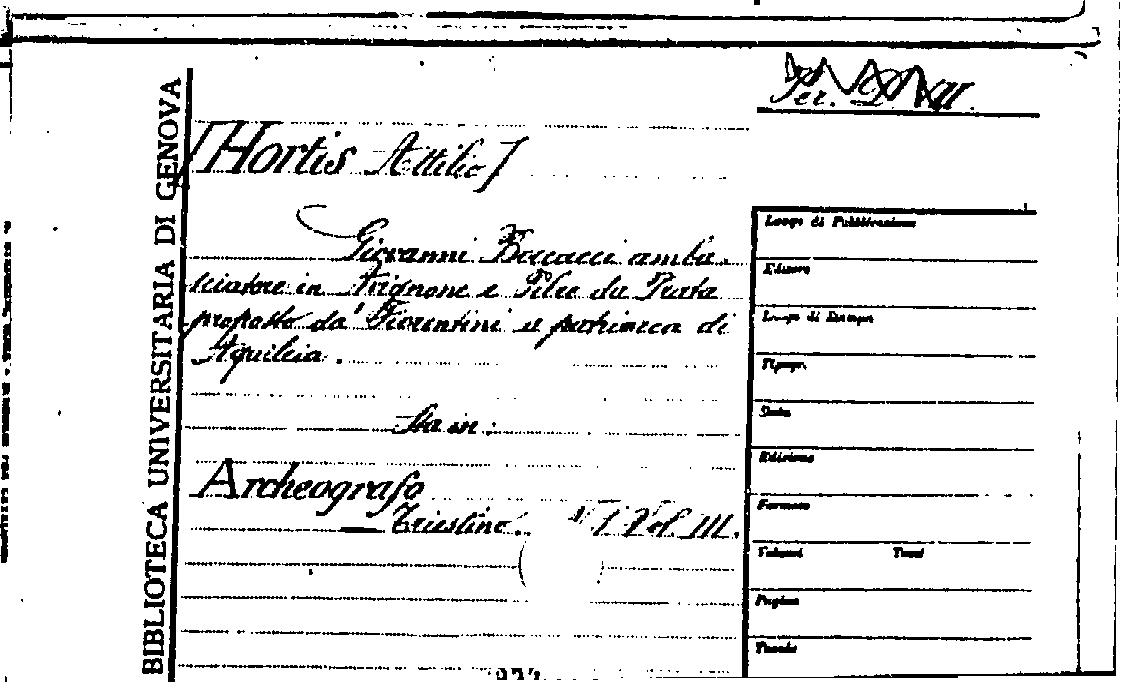 BIBLIOTECA UNIVERSITARIA DI GENOVA
[Hortis Attilio]
Giovanni Boccacci amba-
sciatore in Avignone e Pileo da Prata
proposto da' Fiorentini a patriarca di
Aquileia.
Sta in:
Archeografo
Triestino. Vol. III.
Luogo di Pubblicazione
Editore
Luogo di Stampa
Tipogr.
Data
Edizione
Formato
Volumi Tomi
Pagine
Tavole